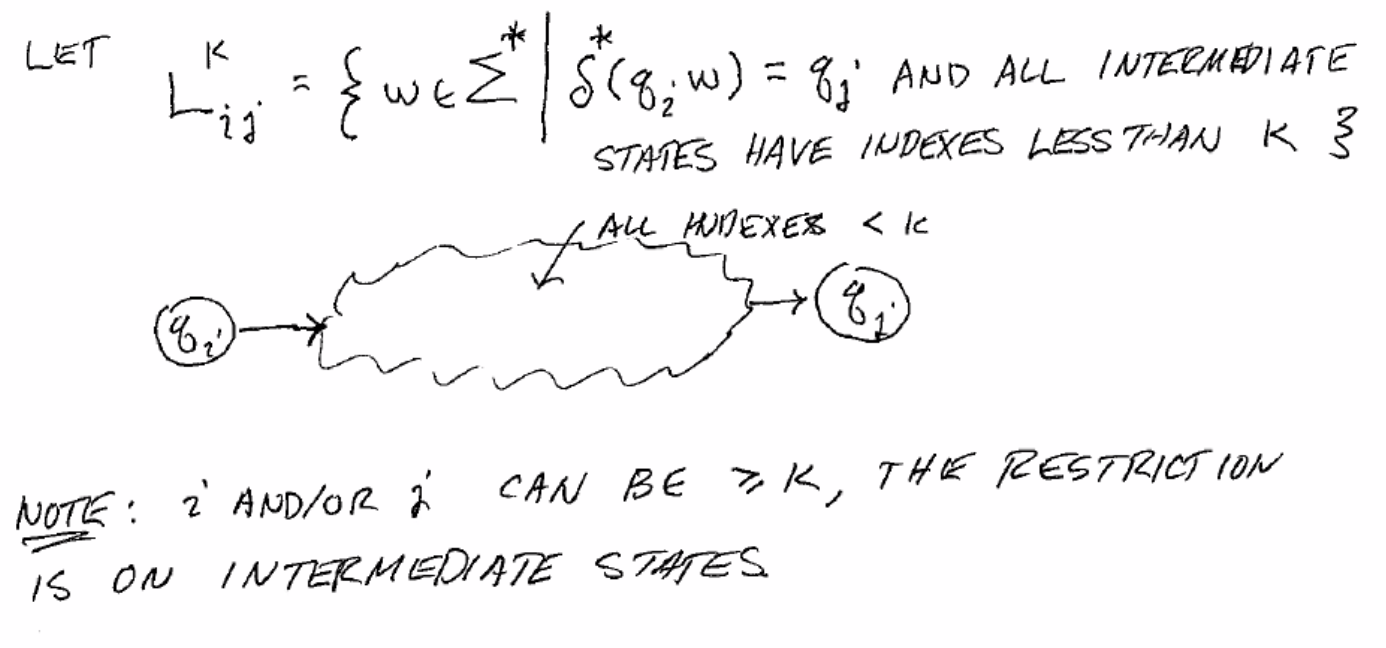 LET L^K_ij = { w ∈ Σ* | δ*(q_i, w) = q_j AND ALL INTERMEDIATE
STATES HAVE INDEXES LESS THAN K }
ALL INDEXES < K
q_i
q_j
NOTE: i AND/OR j CAN BE ≥ K, THE RESTRICTION
IS ON INTERMEDIATE STATES